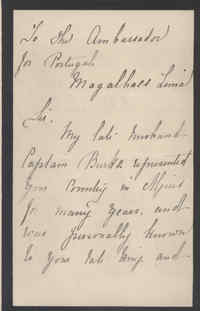 To The Ambassador
for Portugal
Magalhaes Lima
Sir.
My late husband
Captain Burke represented
your Country in
for many years, and
was personally known
to your late King and